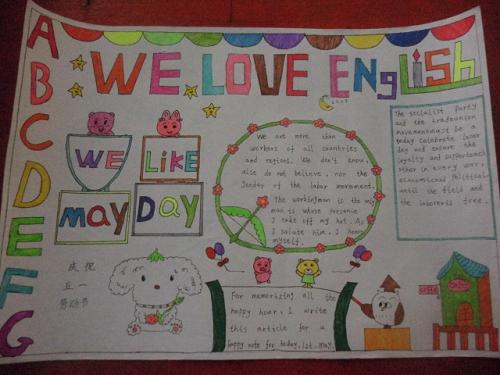 WE LOVE ENgLiSh
A
B
C
D
E
F
G
WE
LiKE
May
Day
We are more than
workers of all countries
and regions. We don't know,
also do not believe, nor the
leader of the labor movement.
The workingman is the my
man is whose presence
I take off my hat. As
I salute him, I honor
myself.
The socialist party
and the tradeunion
movement must be a
today celebrate labor
day not ensure the
loyalty and support each
other in every war,
economic and political
until the field and
the laborers free.
庆祝
五一
劳动节
For memorizing all the
happy hour, I write
this article for a
happy note for today, 1st. May.